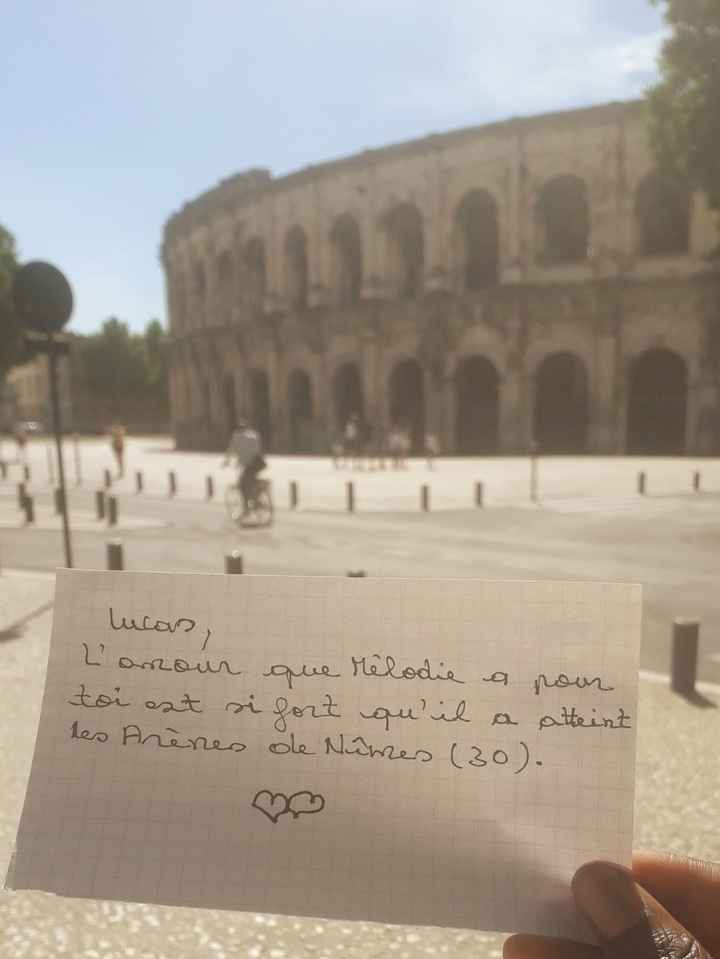 Lucas,
L'amour que Mélodie a pour
toi est si fort qu'il a atteint
les Arènes de Nîmes (30).